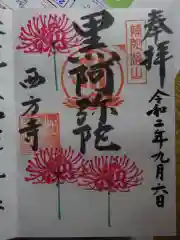 奉拝
令和二年九月六日
黒阿弥陀
西方寺